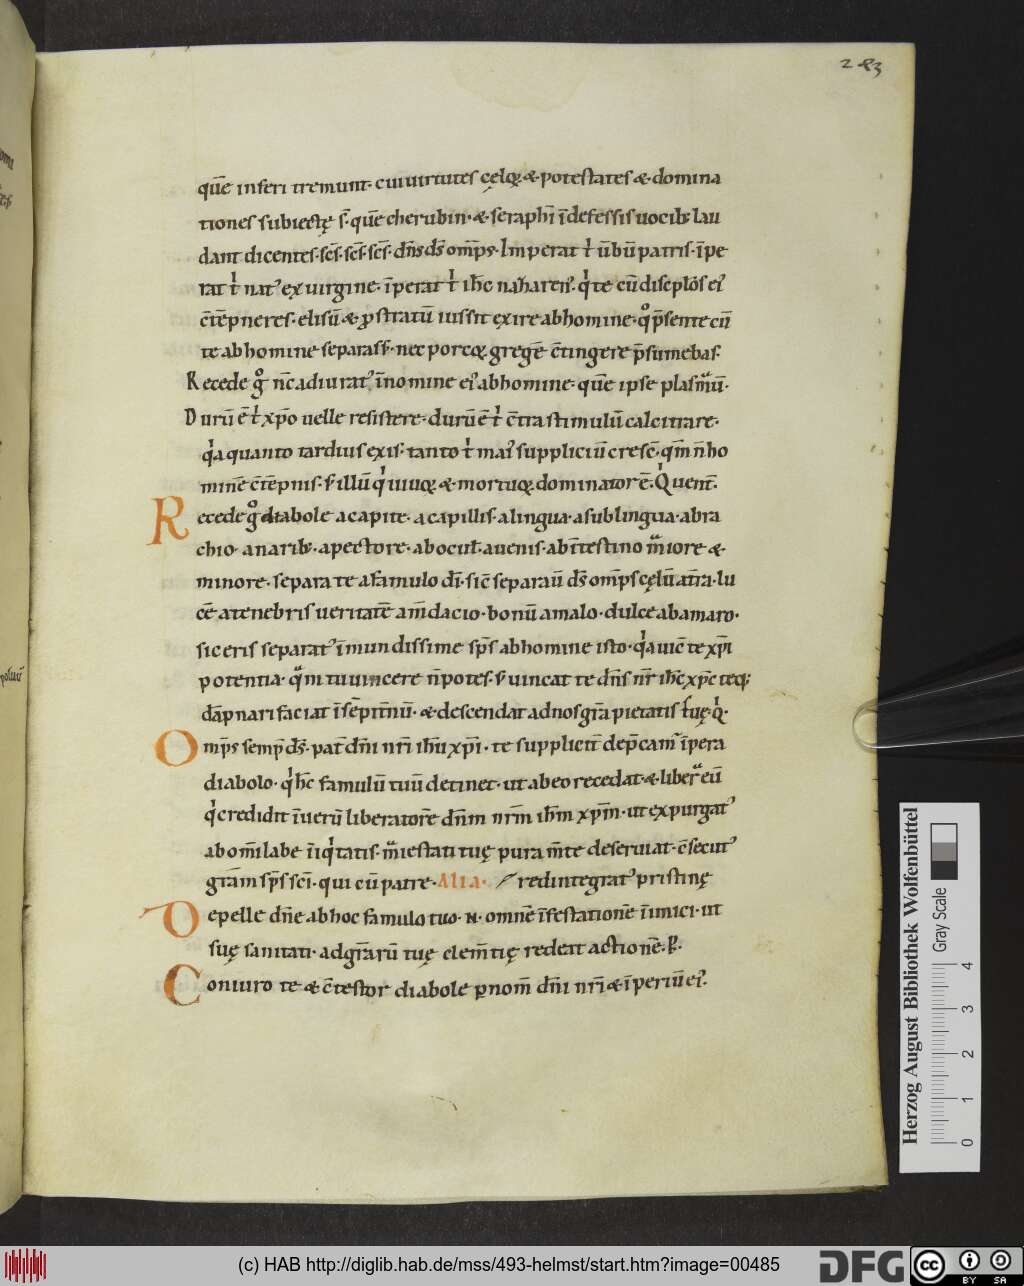 283
quē inferi tremunt· cui uirtutes cęloꝝ & potestates & domina
tiones subiectę s̄· quē cherubin· & seraphī īdefessis uocib; lau
dant dicentes· scs̄· scs̄· scs̄· dn̄s ds̄ om̄ps· Imperat t̄ ūbū patris· īpe
rat t̄ natꝰ ex uirgine· īperat t̄ ih̄c
exire ab homine· 
te ab homine separasſ· nec porcoꝝ gregē c̄tingere p̄sumebas·
Recede g̊ nc̄ adiuratꝰ ī nomine eiꝰ ab homine· quē ipse plasmauū·
Durū ē t̄ xp̄o uelle resistere· durū ē t̄ c̄tra stimulū calcitrare·
qͣa quanto tardius exis· tanto t̄ maiꝰ suppliciū cresc̄· qm̄ n̄ ho
minē c̄tēpnis· s; illū qͥ uiuoꝝ & mortuoꝝ dominatorē· Qͥ uent̄·
Recede g̊ diabole a capite· a capillis· a lingua· a sublingua· a bra
chio· a narib;· a pectore· ab ocul̄· a uenis· ab ītestino maiore &
minore· separa te a famulo dī· sic̄ separauū ds̄ om̄ps cęlū a tr̄a· lu
cē a tenebris ueritatē a m̄dacio· bonū a malo· dulce ab amaro·
sic eris separatꝰ īmundissime sp̄s ab homine isto· qͣa uic̄ te xp̄i
potentia· qͣm tu uincere n̄ potes· s; uincat te dn̄s nr̄ ih̄c xp̄c teq;
dāpnari faciat ī sēpit̄nū· & descendat ad nos gr̄a pietatis tuę· qͥ·
Om̄ps semp̄ ds̄· pat̄ dn̄i nr̄i ih̄u xp̄i· te supplicit̄ dep̄camꝰ īpera
diabolo· qͥ h̄c famulū tuū detinet· ut ab eo recedat & liberet eū
qͥ credidit ī uerū liberatorē dn̄m nr̄m ih̄m xp̄m· ut expurgatꝰ
ab om̄i labe īiqͥtatis· maiestati tuę pura m̄te deseruiat· c̄secutꝰ
gr̄am sp̄s scī· qui cū patre· Alia·
redintegratꝰ pristinę
Depelle dn̄e ab hoc famulo tuo· N· omnē īfestationē īimici· ut
suę sanitati· ad gr̄arū tuę clem̄tię redeat actionē· P̄·
Coniuro te & c̄testor diabole ꝑ nom̄ dn̄i nr̄i & īperiū eiꝰ·
Herzog August Bibliothek Wolfenbüttel
Gray Scale
0 1 2 3 4
(c) HAB http://diglib.hab.de/mss/493-helmst/start.htm?image=00485
DFG
cc
BY SA